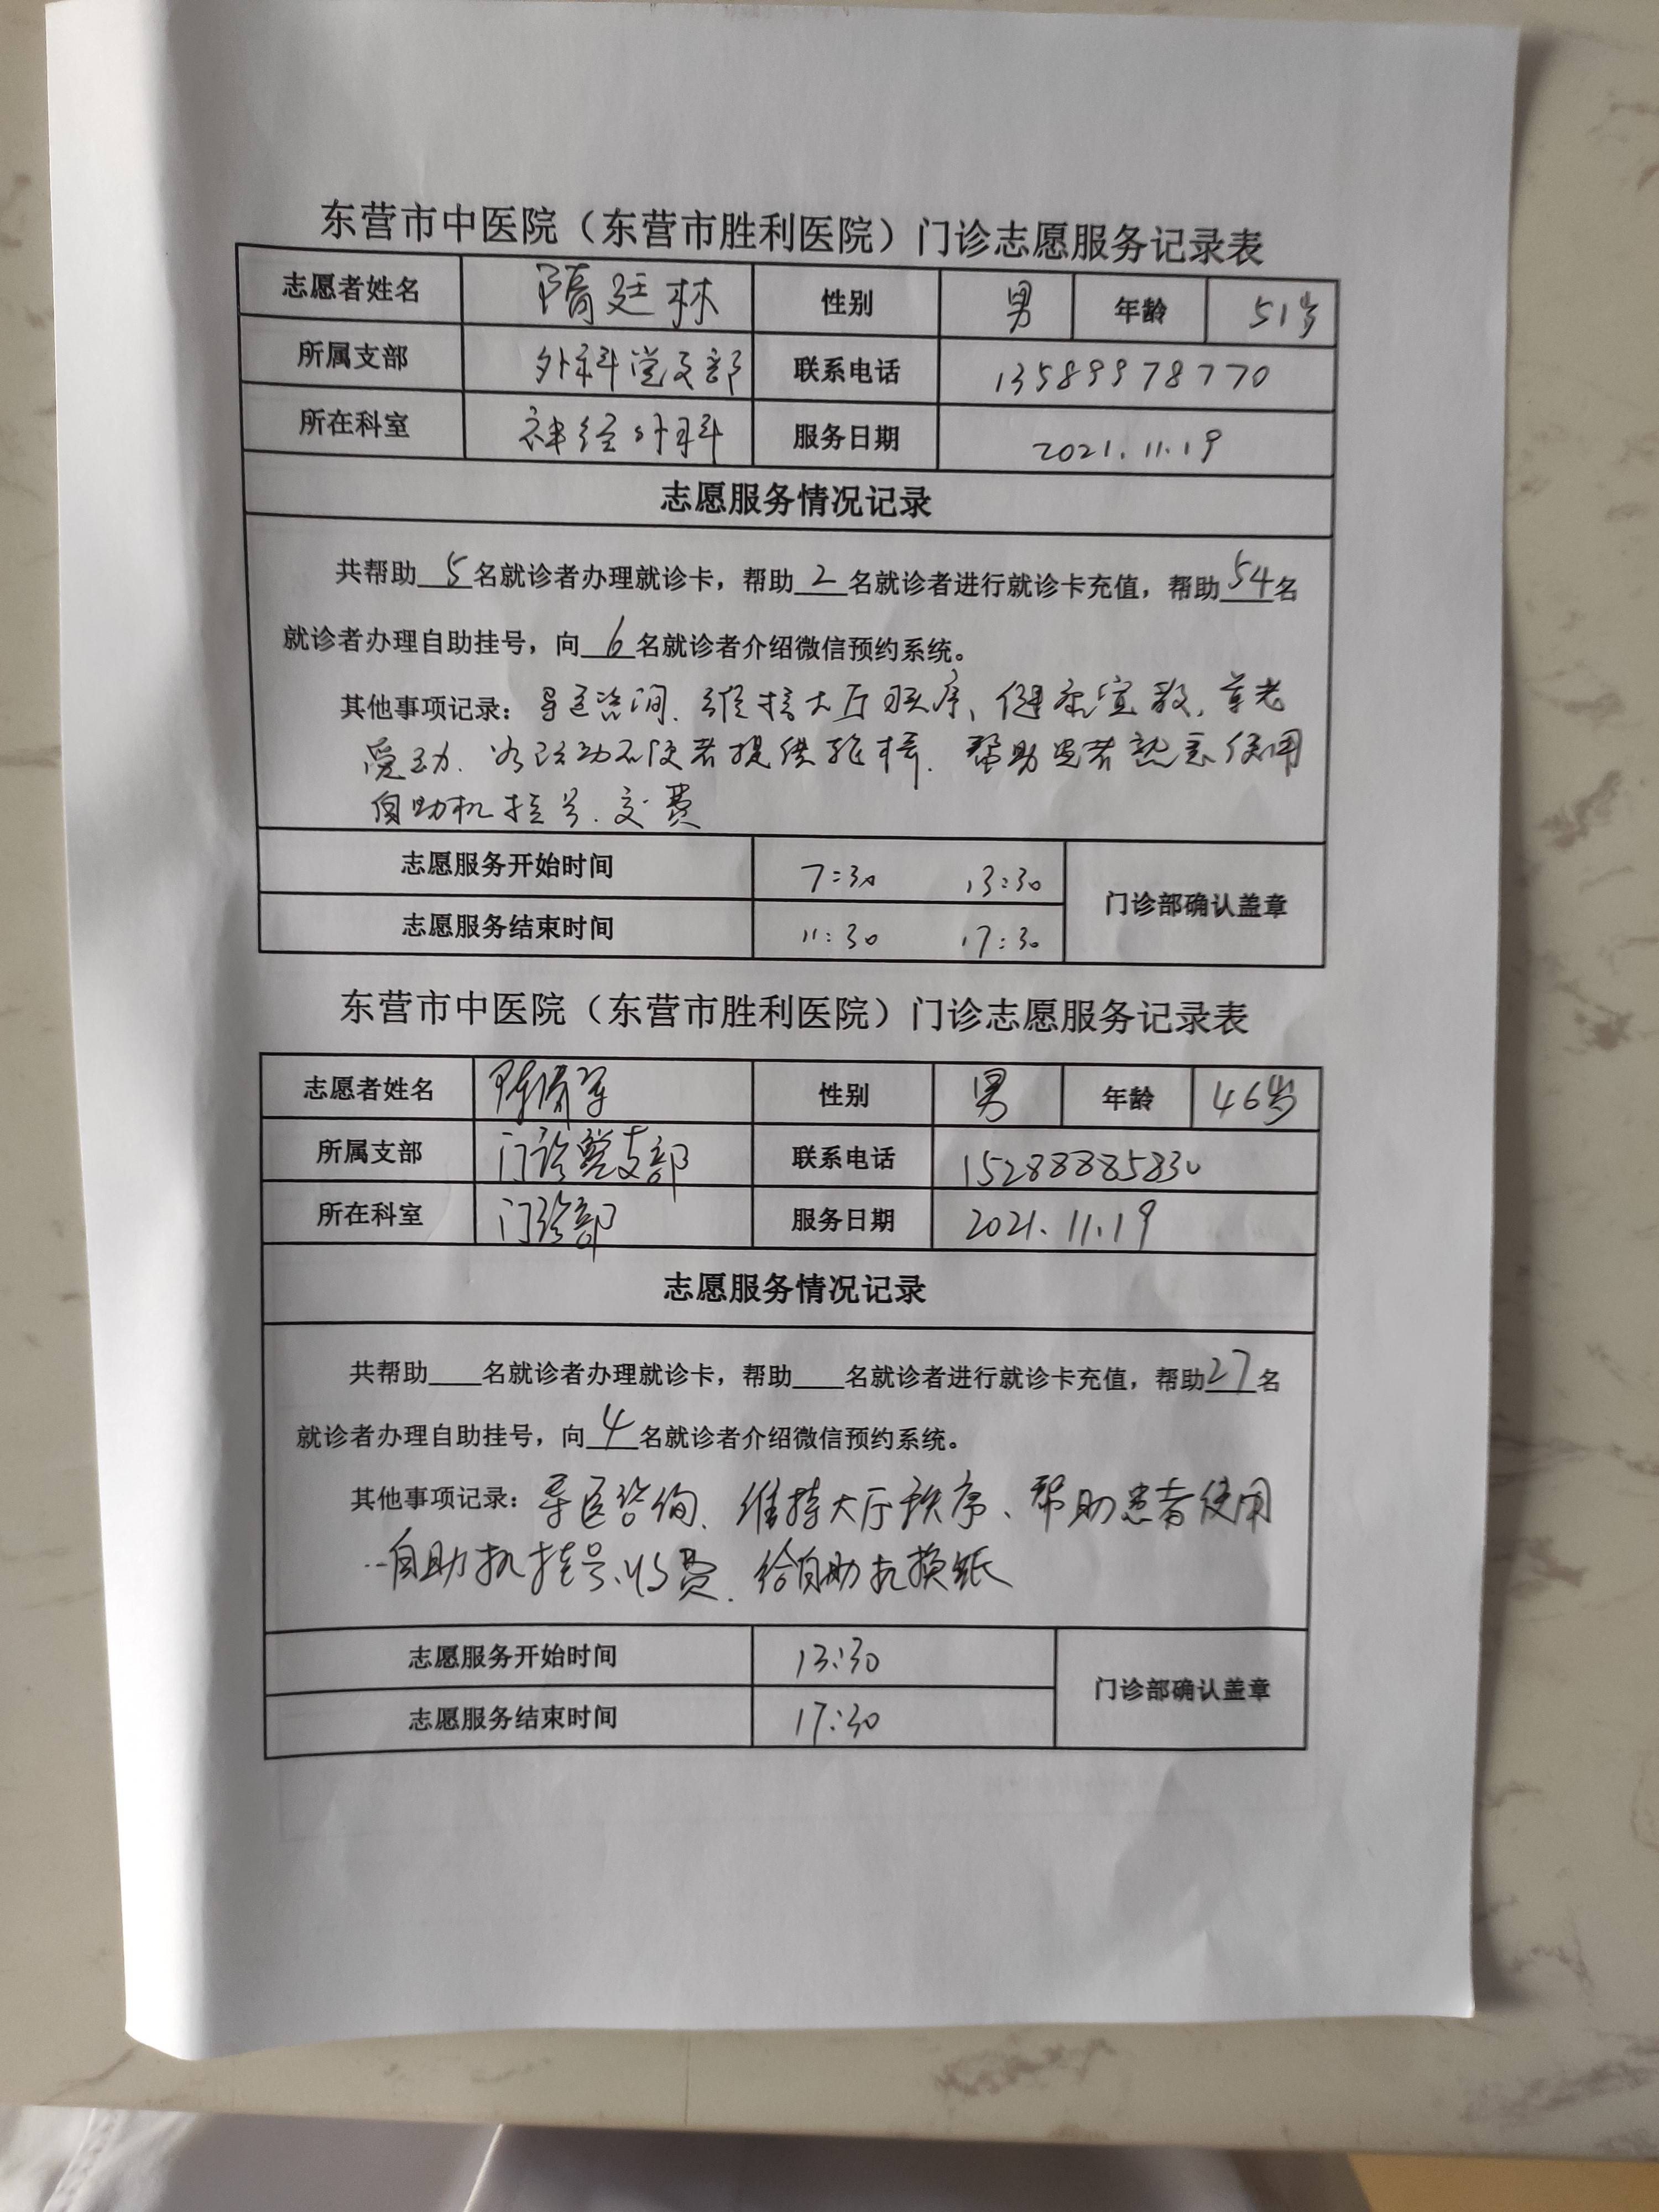 东营市中医院（东营市胜利医院）门诊志愿服务记录表
志愿者姓名 隋廷林 性别 男 年龄 51岁
所属支部 外科党支部 联系电话 13589978770
所在科室 神经外科 服务日期 2021.11.19
志愿服务情况记录
共帮助5名就诊者办理就诊卡，帮助2名就诊者进行就诊卡充值，帮助54名
就诊者办理自助挂号，向6名就诊者介绍微信预约系统。
其他事项记录：导医咨询、维持大厅秩序、健康宣教、
为活动不便者提供 帮助患者熟悉使用
自助机挂号、交费
志愿服务开始时间 7:30 13:30
门诊部确认盖章
志愿服务结束时间 11:30 17:30
东营市中医院（东营市胜利医院）门诊志愿服务记录表
志愿者姓名 性别 男 年龄 46岁
所属支部 门诊党支部 联系电话 15288885830
所在科室 门诊部 服务日期 2021.11.19
志愿服务情况记录
共帮助____名就诊者办理就诊卡，帮助____名就诊者进行就诊卡充值，帮助27名
就诊者办理自助挂号，向4名就诊者介绍微信预约系统。
其他事项记录：导医咨询、维持大厅秩序、帮助患者使用
自助机挂号、收费、给自助机换纸
志愿服务开始时间 13:30
门诊部确认盖章
志愿服务结束时间 17:30